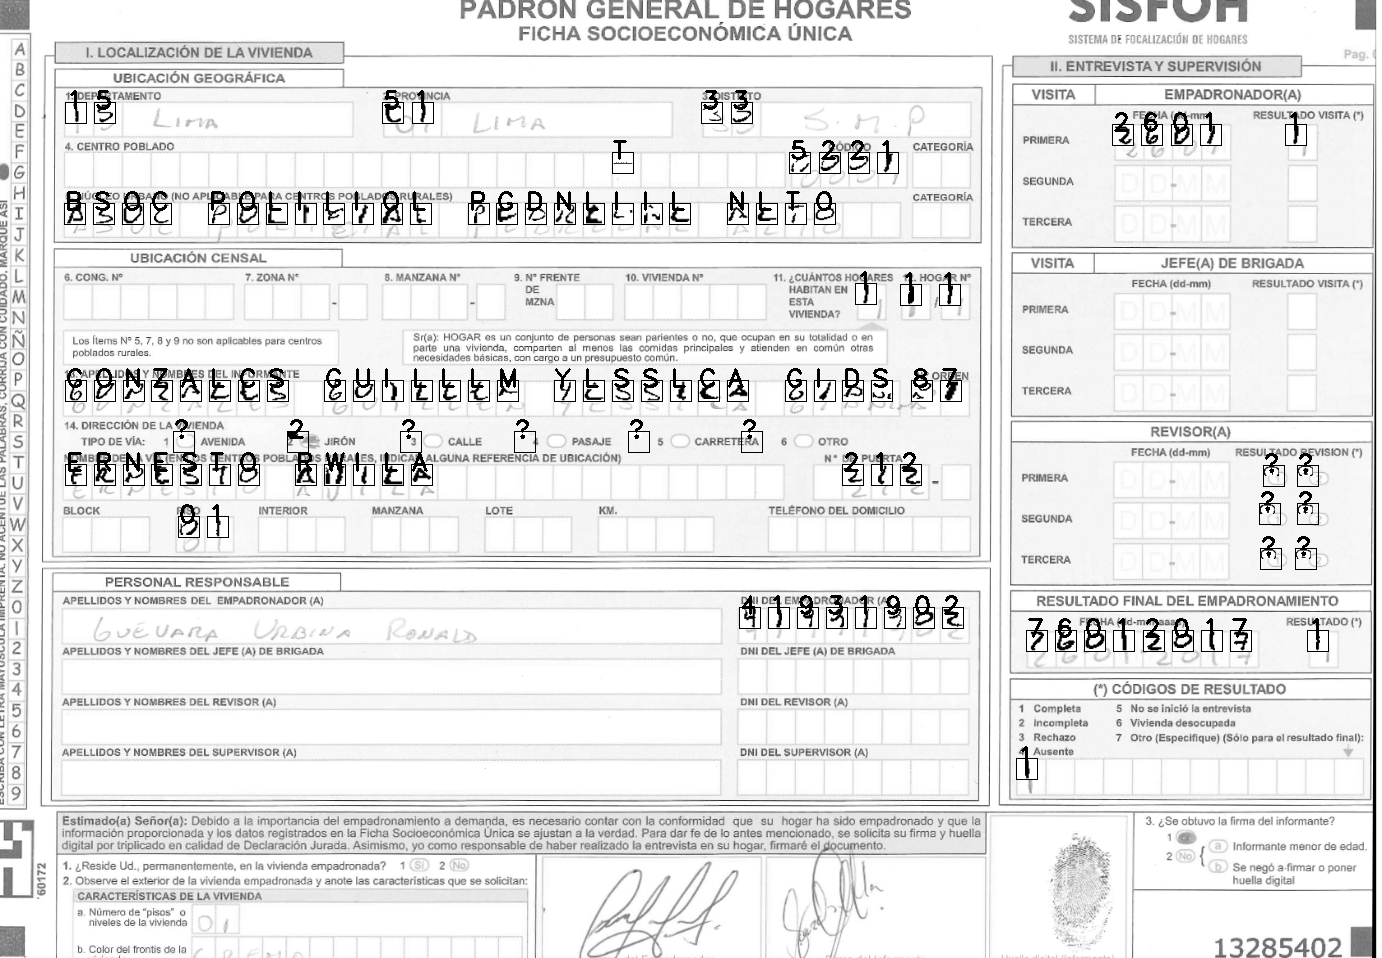 PADRÓN GENERAL DE HOGARES
FICHA SOCIOECONÓMICA ÚNICA
SISFOH
SISTEMA DE FOCALIZACIÓN DE HOGARES
Pag.
I. LOCALIZACIÓN DE LA VIVIENDA
UBICACIÓN GEOGRÁFICA
1. DEPARTAMENTO PROVINCIA DISTRITO
15 LIMA 51 LIMA 33 S.M.P
4. CENTRO POBLADO CÓDIGO CATEGORÍA
T 5221
NÚCLEO URBANO (NO APLICABLE PARA CENTROS POBLADOS RURALES) CATEGORÍA
BSOC POLILIOL PGDNLILL NLTO
UBICACIÓN CENSAL
6. CONG. Nº 7. ZONA Nº 8. MANZANA Nº 9. Nº FRENTE DE MZNA 10. VIVIENDA Nº 11. ¿CUÁNTOS HOGARES HABITAN EN ESTA VIVIENDA? HOGAR Nº
1 1 1
Los Ítems Nº 5, 7, 8 y 9 no son aplicables para centros poblados rurales.
Sr(a): HOGAR es un conjunto de personas sean parientes o no, que ocupan en su totalidad o en
parte una vivienda, comparten al menos las comidas principales y atienden en común otras
necesidades básicas, con cargo a un presupuesto común.
APELLIDOS Y NOMBRES DEL INFORMANTE ORDEN
GONZALES GUILLLLM YLSSLCA GIDS 87
14. DIRECCIÓN DE LA VIVIENDA
TIPO DE VÍA: 1 ? AVENIDA 2 JIRÓN ? 3 CALLE ? 4 PASAJE ? 5 CARRETERA ? 6 OTRO
NOMBRE DE LA VÍA (EN LOS CENTROS POBLADOS RURALES, INDICAR ALGUNA REFERENCIA DE UBICACIÓN) Nº DE PUERTA
ERNESTO RWILA 212 -
BLOCK PISO INTERIOR MANZANA LOTE KM. TELÉFONO DEL DOMICILIO
01
PERSONAL RESPONSABLE
APELLIDOS Y NOMBRES DEL EMPADRONADOR (A) DNI DEL EMPADRONADOR (A)
GUEVARA URBINA RONALD 41931902
APELLIDOS Y NOMBRES DEL JEFE (A) DE BRIGADA DNI DEL JEFE (A) DE BRIGADA
APELLIDOS Y NOMBRES DEL REVISOR (A) DNI DEL REVISOR (A)
APELLIDOS Y NOMBRES DEL SUPERVISOR (A) DNI DEL SUPERVISOR (A)
II. ENTREVISTA Y SUPERVISIÓN
VISITA EMPADRONADOR(A)
FECHA (dd-mm) RESULTADO VISITA (*)
PRIMERA 2601 1
SEGUNDA DD-MM
TERCERA DD-MM
VISITA JEFE(A) DE BRIGADA
FECHA (dd-mm) RESULTADO VISITA (*)
PRIMERA DD-MM
SEGUNDA DD-MM
TERCERA DD-MM
REVISOR(A)
FECHA (dd-mm) RESULTADO REVISION (*)
PRIMERA DD-MM ? ?
SEGUNDA DD-MM ? ?
TERCERA DD-MM ? ?
RESULTADO FINAL DEL EMPADRONAMIENTO
FECHA (dd-mm-aaaa) RESULTADO (*)
76012017 1
(*) CÓDIGOS DE RESULTADO
1 Completa 5 No se inició la entrevista
2 Incompleta 6 Vivienda desocupada
3 Rechazo 7 Otro (Especifique) (Sólo para el resultado final):
4 Ausente
1
Estimado(a) Señor(a): Debido a la importancia del empadronamiento a demanda, es necesario contar con la conformidad que su hogar ha sido empadronado y que la
información proporcionada y los datos registrados en la Ficha Socioeconómica Única se ajustan a la verdad. Para dar fe de lo antes mencionado, se solicita su firma y huella
digital por triplicado en calidad de Declaración Jurada. Asimismo, yo como responsable de haber realizado la entrevista en su hogar, firmaré el documento.
1. ¿Reside Ud., permanentemente, en la vivienda empadronada? 1 Si 2 No
2. Observe el exterior de la vivienda empadronada y anote las características que se solicitan:
CARACTERÍSTICAS DE LA VIVIENDA
a. Número de "pisos" o niveles de la vivienda 01
b. Color del frontis de la CREMA
3. ¿Se obtuvo la firma del informante?
1
2 No
a Informante menor de edad.
b Se negó a firmar o poner huella digital
13285402
60172
A B C D E F G H I J K L M N Ñ O P Q R S T U V W X Y Z 0 1 2 3 4 5 6 7 8 9